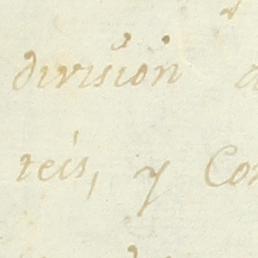 división
reis, y Con